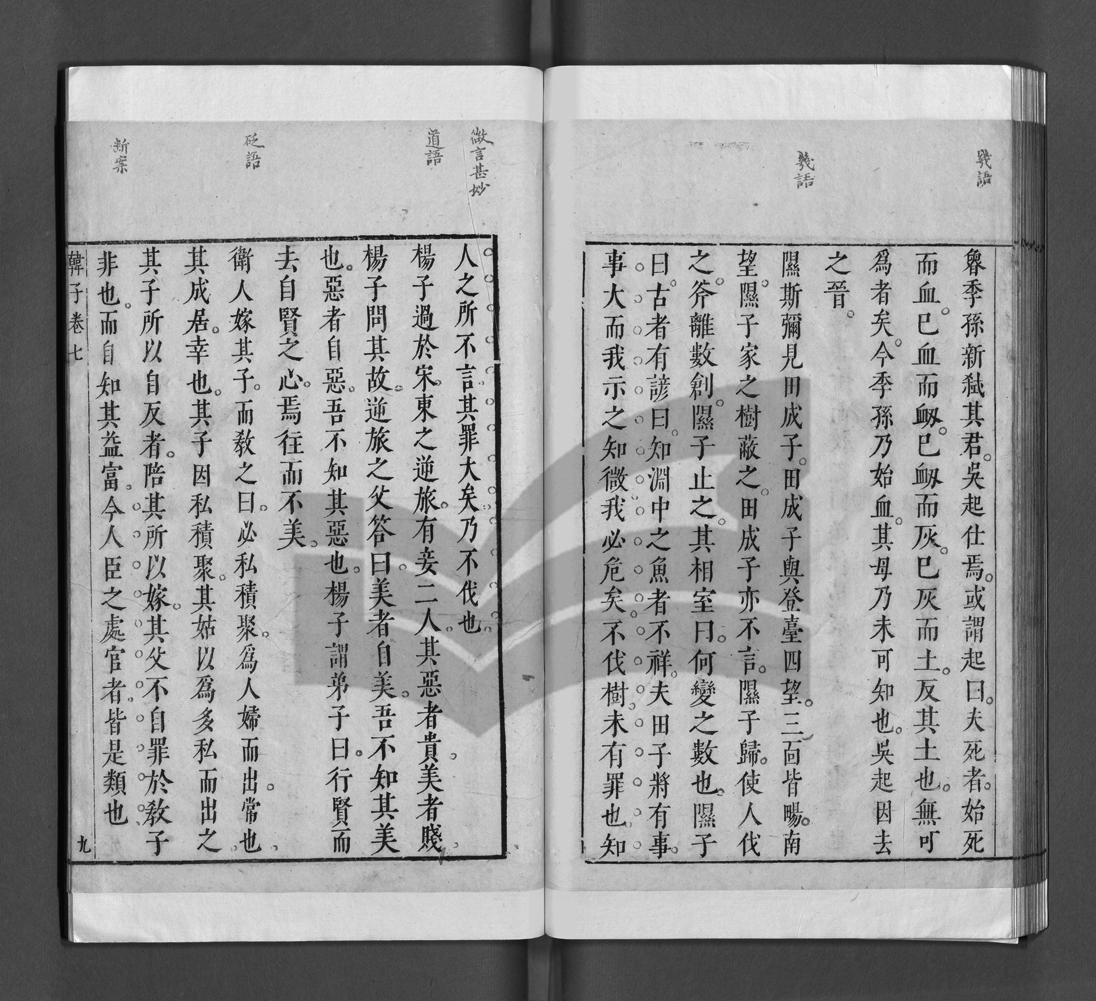 魯季孫新弒其君。吳起仕焉。或謂起曰。夫死者。始死
而血。已血而衂。已衂而灰。已灰而土。反其土也。無可
爲者矣。今季孫乃始血。其母乃未可知也。吳起因去
之晉。
隰斯彌見田成子。田成子與登臺四望。三面皆暢。南
望。隰子家之樹蔽之。田成子亦不言。隰子歸。使人伐
之。斧離數創。隰子止之。其相室曰。何變之數也。隰子
曰。古者有諺曰。知淵中之魚者不祥。夫田子將有事。
事大而我示之知微我必危矣。不伐樹未有罪也知
道語
砭語
人之所不言其罪大矣乃不伐也
楊子過於宋。東之逆旅。有妾二人。其惡者貴。美者賤。
楊子問其故。逆旅之父答曰。美者自美。吾不知其美
也。惡者自惡。吾不知其惡也。楊子謂弟子曰。行賢而
去自賢之心。焉往而不美。
衛人嫁其子。而敎之曰。必私積聚。爲人婦而出。常也。
其成居。幸也。其子因私積聚。其姑以爲多私而出之
其子所以自反者。陪其所以嫁。其父不自罪於敎子
非也。而自知其益富。今人臣之處官者。皆是類也
韓子卷七
九